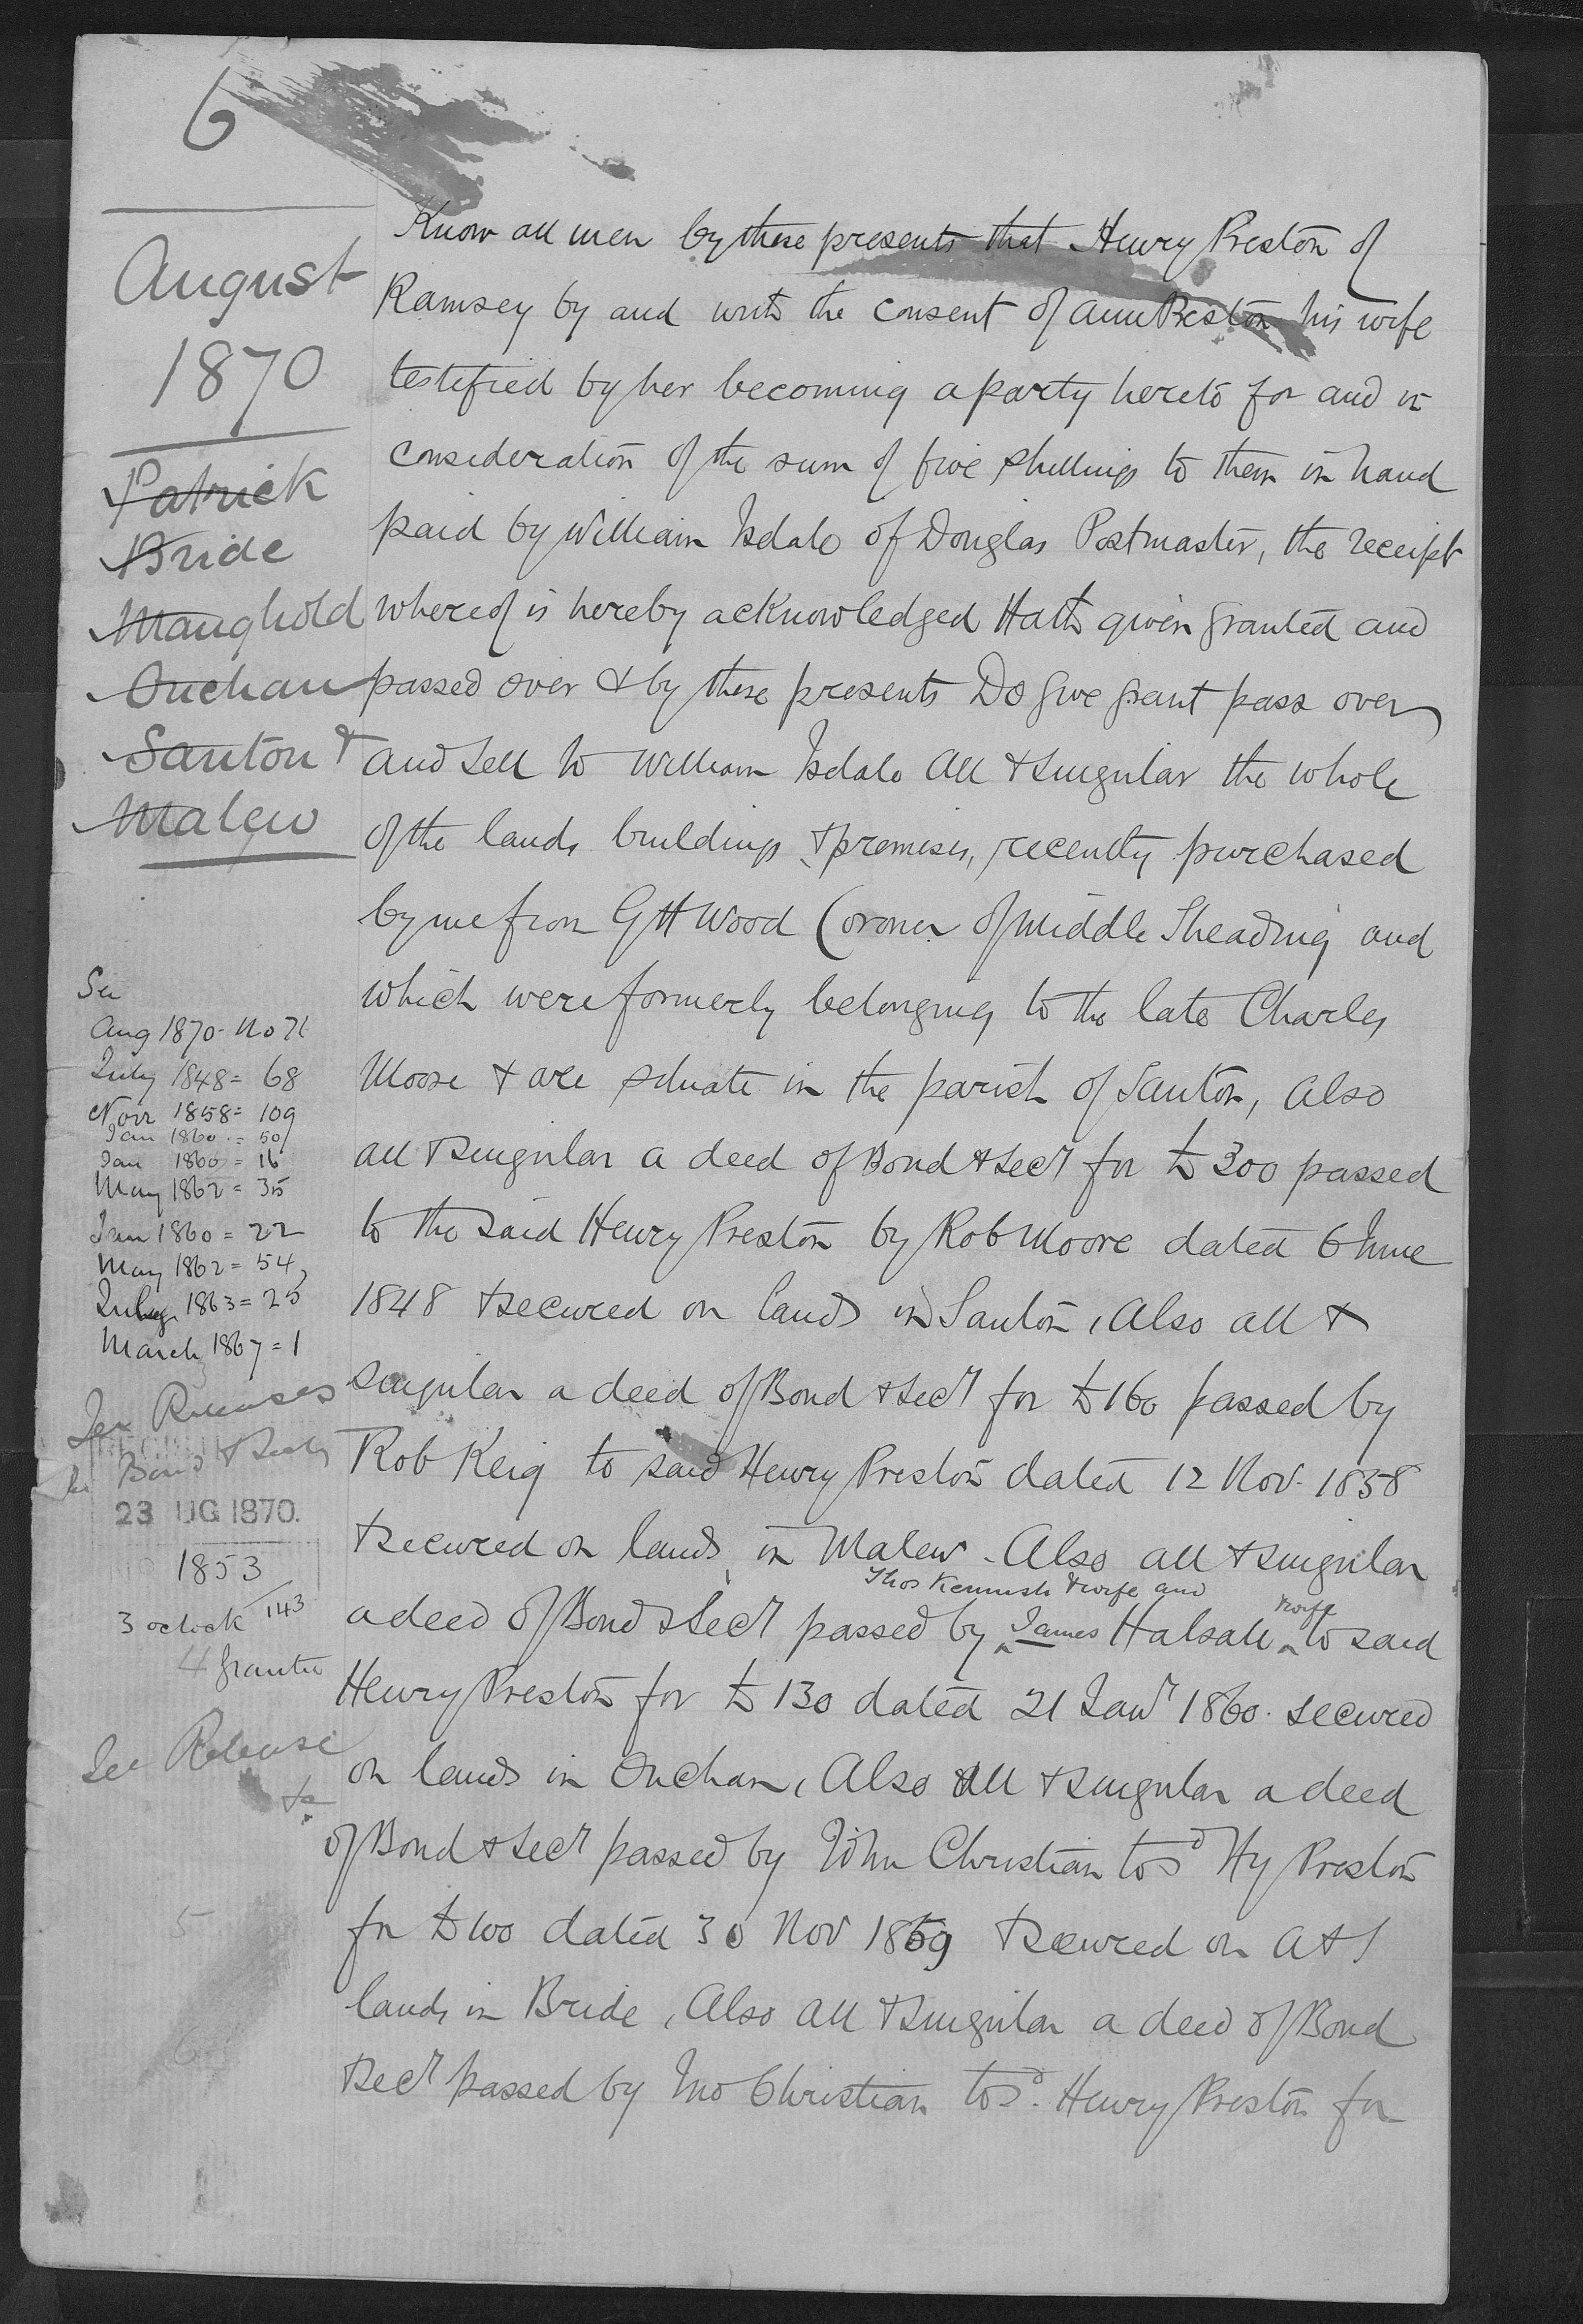 6
August
1870
Patrick
Bride
Maughold
Onchan
Santon &
Malew
See
Aug 1870 - No 71
July 1848 = 68
Novr 1858 = 109
Jan 1860 = 50
Jan 1860 = 16
May 1862 = 35
Jan 1860 = 22
May 1862 = 54
July 1863 = 25
March 1867 = 1
See Releases
Bond & Secty
23 UG 1870.
1853
143
3 oclock
4 Grantee
See Release
to
5
6
Know all men by these presents that Henry Preston of
Ramsey by and with the consent of Ann Preston his wife
testified by her becoming a party hereto for and in
consideration of the sum of five shillings to them in hand
paid by William Isdale of Douglas Postmaster, the receipt
whereof is hereby acknowledged Hath given granted and
passed over & by these presents Do give grant pass over
and sell to William Isdale All & singular the whole
of the lands buildings & premises, recently purchased
by me from G H Wood Coroner of Middle Sheading and
which were formerly belonging to the late Charles
Moore & are situate in the parish of Santon, Also
all & singular a deed of Bond & Secy for £300 passed
to the said Henry Preston by Rob Moore dated 6 June
1848 & secured on lands in Santon, Also all &
singular a deed of Bond & Secy for £160 passed by
Rob Keig to said Henry Preston dated 12 Nov. 1858
& secured on lands in Malew. Also all & singular
Thos Kennish & wife and
& wife
a deed of Bond & Secy passed by James Halsall to said
Henry Preston for £130 dated 21 Jany 1860. secured
on lands in Onchan, Also All & singular a deed
of Bond & Secy passed by John Christian to sd Hy Preston
for £100 dated 30 Nov 1859 & secured on A & S
lands in Bride, Also all & singular a deed of Bond
& Secy passed by Jno Christian to sd. Henry Preston for